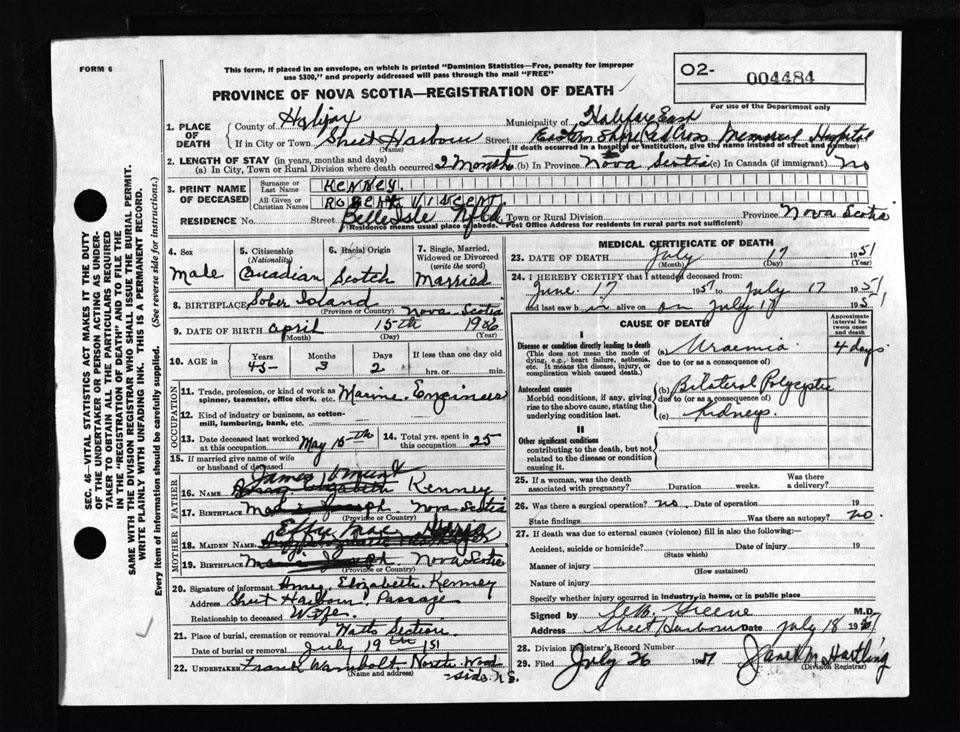 FORM 6
This form, if placed in an envelope, on which is printed "Dominion Statistics—Free, penalty for improper
use $300," and properly addressed will pass through the mail "FREE"
PROVINCE OF NOVA SCOTIA—REGISTRATION OF DEATH
O2- 004484
For use of the Department only
SEC. 46—VITAL STATISTICS ACT MAKES IT THE DUTY
OF THE UNDERTAKER OR PERSON ACTING AS UNDER-
TAKER TO OBTAIN ALL THE PARTICULARS REQUIRED
IN THE "REGISTRATION OF DEATH" AND TO FILE THE
SAME WITH THE DIVISION REGISTRAR WHO SHALL ISSUE THE BURIAL PERMIT.
WRITE PLAINLY WITH UNFADING INK. THIS IS A PERMANENT RECORD.
Every item of information should be carefully supplied. (See reverse side for instructions.)
1. PLACE OF DEATH
County of Halifax Municipality of Halifax East
If in City or Town Sheet Harbour Street Eastern Shore Red Cross Memorial Hospital
(Name) (If death occurred in a hospital or institution, give the name instead of street and number)
2. LENGTH OF STAY (in years, months and days)
(a) In City, Town or Rural Division where death occurred 2 Months (b) In Province Nova Scotia (c) In Canada (if immigrant) no
3. PRINT NAME OF DECEASED
Surname or Last Name KENNEY.
All Given or Christian Names ROBERT VINCENT
RESIDENCE No. Street Belle Isle Nfld City, Town or Rural Division Province Nova Scotia
(Residence means usual place of abode. Post Office Address for residents in rural parts not sufficient)
4. Sex
Male
5. Citizenship (Nationality)
Canadian
6. Racial Origin
Scotch
7. Single, Married, Widowed or Divorced (write the word)
Married
8. BIRTHPLACE Sober Island Nova Scotia
(Province or Country)
9. DATE OF BIRTH April 15th 1906
(Month) (Day) (Year)
10. AGE in Years Months Days If less than one day old
45 3 2 hrs. or min.
OCCUPATION
11. Trade, profession, or kind of work as
spinner, teamster, office clerk, etc. Marine Engineer
12. Kind of industry or business, as cotton-
mill, lumbering, bank, etc.
13. Date deceased last worked
at this occupation May 15th
14. Total yrs. spent in
this occupation 25
15. If married give name of wife
or husband of deceased
FATHER
James
16. NAME Kenney
17. BIRTHPLACE Nova Scotia
(Province or Country)
MOTHER
Effye
18. MAIDEN NAME
19. BIRTHPLACE Nova Scotia
(Province or Country)
20. Signature of informant Amy Elizabeth Kenney
Address Sheet Harbour Passage
Relationship to deceased Wife
21. Place of burial, cremation or removal Watts Section
Date of burial or removal July 19th 1951
22. UNDERTAKER Frank Warnbolt North Wood
(Name and address)
side. N.S.
MEDICAL CERTIFICATE OF DEATH
23. DATE OF DEATH July 17 1951
(Month) (Day) (Year)
24. I HEREBY CERTIFY that I attended deceased from:
June 17 1951 to July 17 1951
and last saw h im alive on July 17 1951
CAUSE OF DEATH
Approximate interval between onset and death
I
Disease or condition directly leading to death
(This does not mean the mode of
dying, e.g., heart failure, asthenia,
etc. It means the disease, injury, or
complication which caused death.)
(a) Uraemia 4 days
due to (or as a consequence of)
Antecedent causes
Morbid conditions, if any, giving
rise to the above cause, stating the
underlying condition last.
(b) Bilateral Polycystic
due to (or as a consequence of)
(c) Kidneys.
II
Other significant conditions
contributing to the death, but not
related to the disease or condition
causing it.
25. If a woman, was the death
associated with pregnancy? Duration weeks. Was there a delivery?
26. Was there a surgical operation? no. Date of operation 19
State findings Was there an autopsy? no.
27. If death was due to external causes (violence) fill in also the following:
Accident, suicide or homicide? Date of injury 19
(State which)
Manner of injury
(How sustained)
Nature of injury
Specify whether injury occurred in industry, in home, or in public place
Signed by Greene M.D.
Address Sheet Harbour Date July 18 1951
28. Division Registrar's Record Number
29. Filed July 26 1951 Janet M Hartling
(Division Registrar)